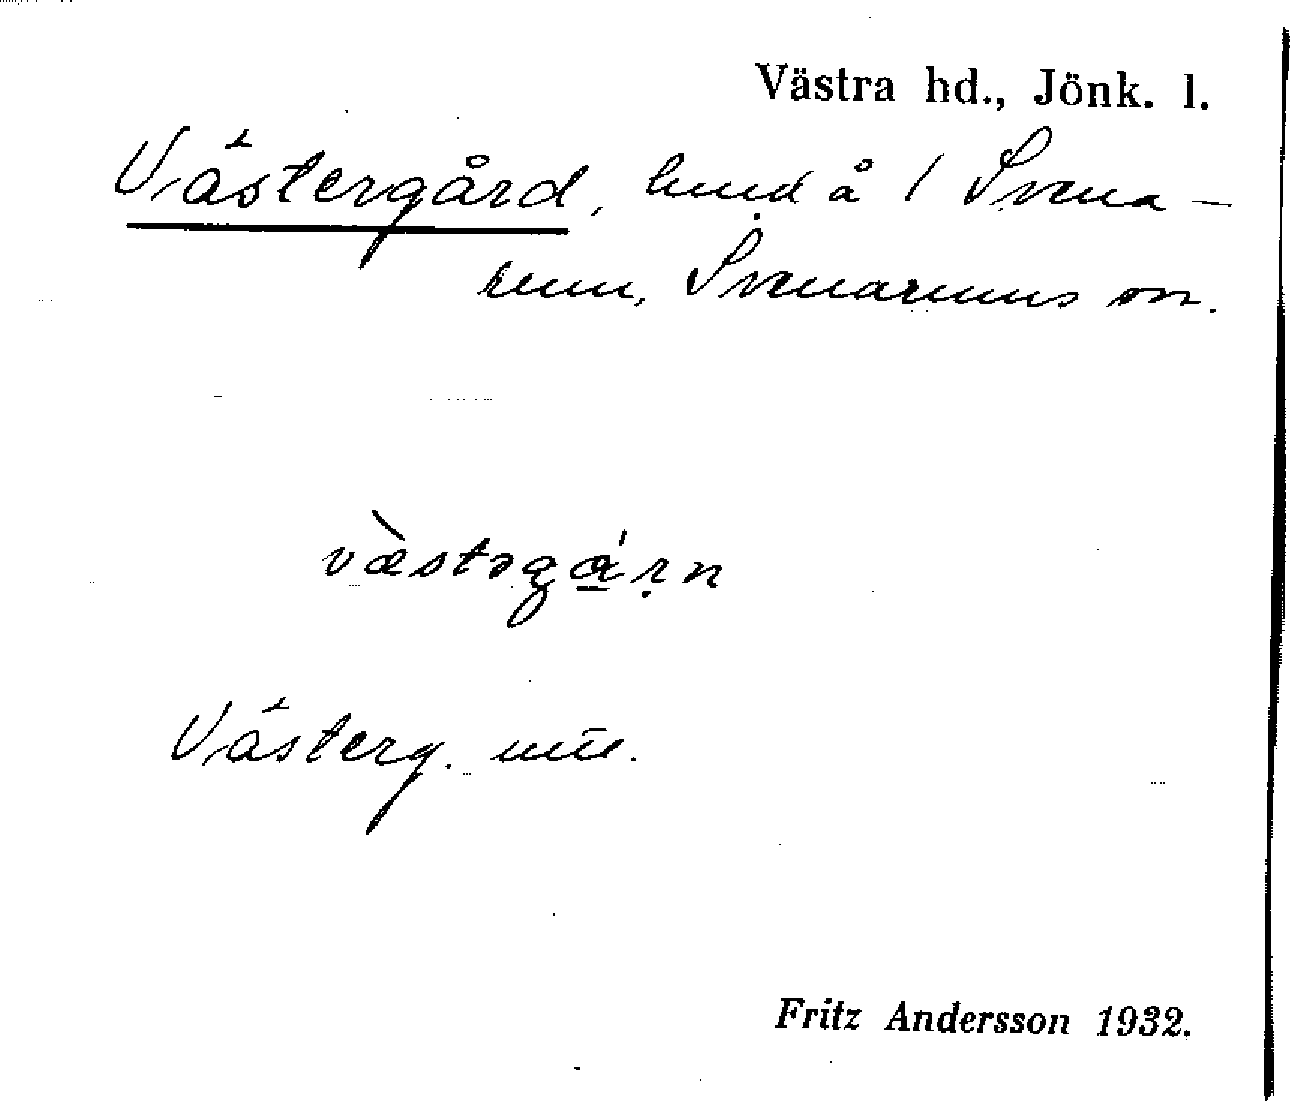 Västra hd., Jönk. l.
Västergård, hmd å 1 Svena-
rum, Svenarums sn.
væstəgạ́rn
Västerg. mtl.
Fritz Andersson 1932.